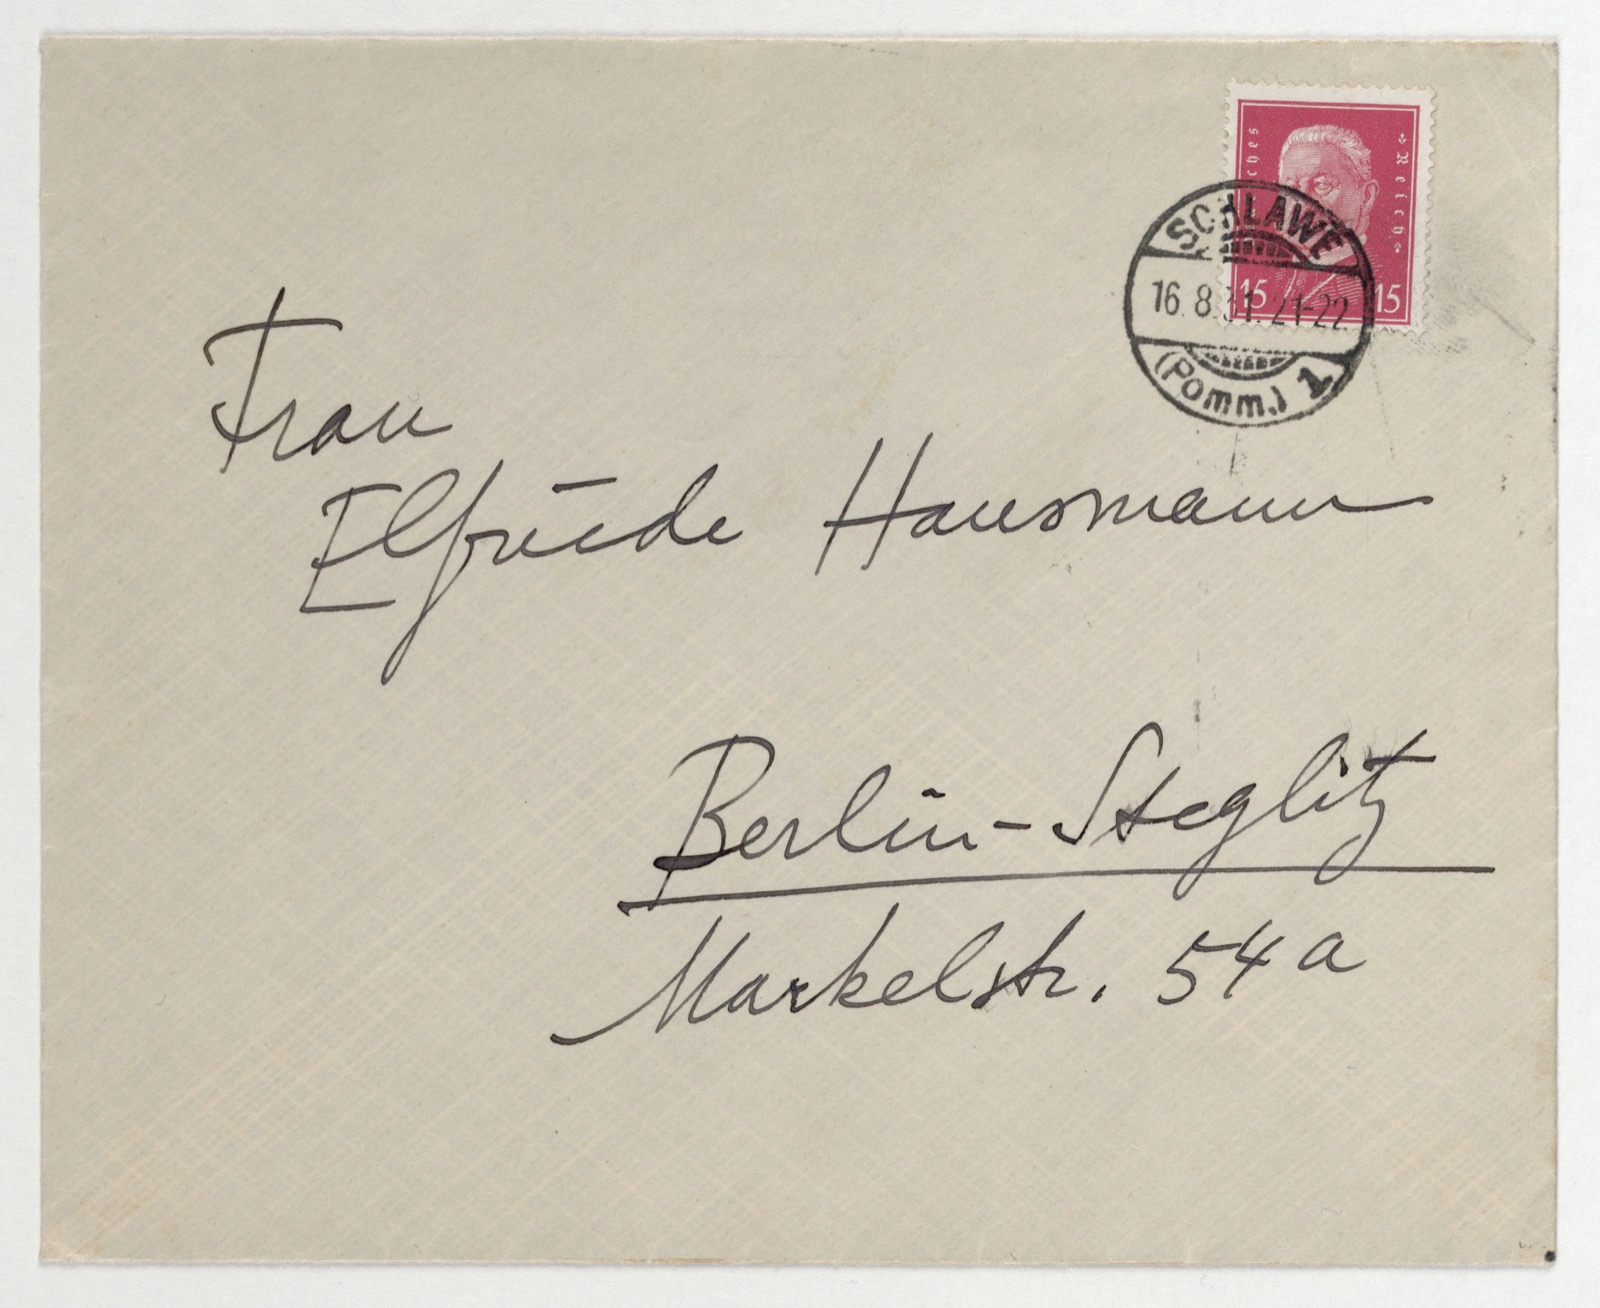 ches
Reich
15 15
SCHLAWE
16.8.31.21-22
(Pomm.) 1
Frau
Elfriede Hausmann
Berlin-Steglitz
Markelstr. 54a